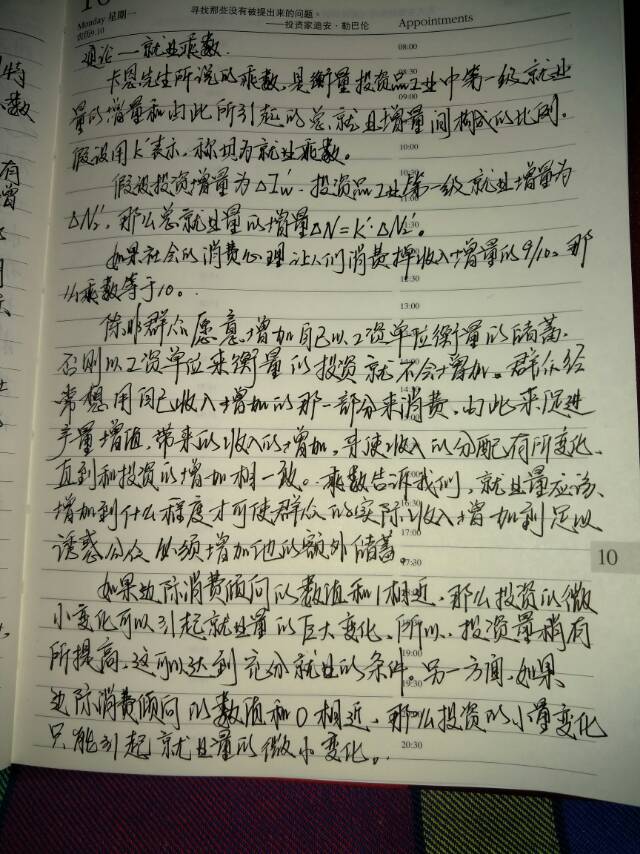 10
Monday 星期一
农历9.10
寻找那些没有被提出来的问题。
——投资家迪安·勒巴伦
Appointments
通论——就业乘数.
08:00
卡恩先生所说的乘数,是衡量投资品工业中第一级就业
09:00
量的增量和由此所引起的总就业增量间构成的比例。
假设用K′表示,称切为就业乘数。
10:00
假设投资增量为△I′w.投资品工业第一级就业增量为
△N₂′,那么总就业量的增量△N=K′·△N₂′。
如果社会的消费心理让人们消费掉收入增量的9/10。那
么乘数等于10。
12:30
13:00
除非群众愿意增加自己以工资单位衡量的储蓄,
否则以工资单位来衡量的投资就不会增加。群众经
常想用自己收入增加的那一部分来消费,由此来促进
产量增值,带来的收入的增加,并使收入的分配有所变化,
直到和投资的增加相一致。乘数告诉我们,就业量应该
增加到什么程度才可使群众的实际收入增加到足以
16:30
17:00
诱惑公众必须增加他的额外储蓄。
17:30
10
如果边际消费倾向的数值和1相近,那么投资的微
小变化可以引起就业量的巨大变化。所以,投资量稍有
19:00
所提高,这可以达到充分就业的条件。另一方面,如果
19:30
边际消费倾向的数值和0相近,那么投资的小量变化
只能引起就业量的微小变化。
20:30